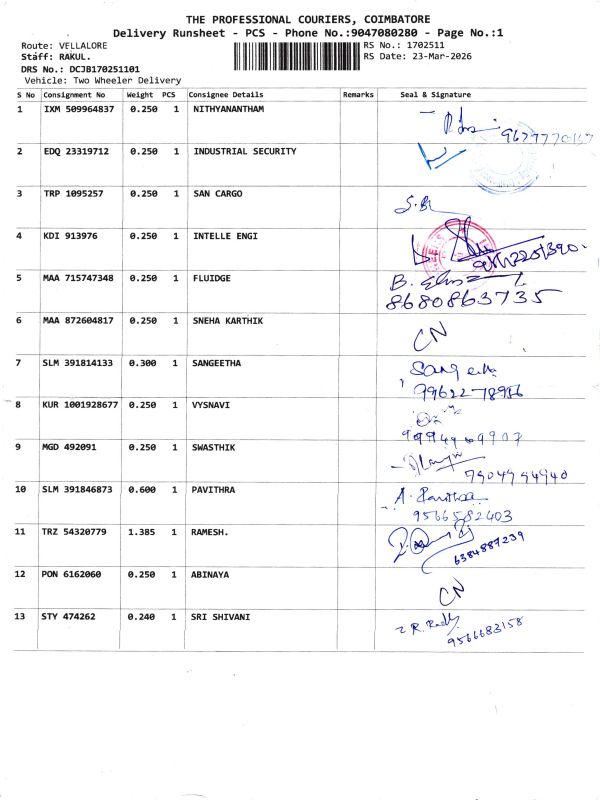 THE PROFESSIONAL COURIERS, COIMBATORE
Delivery Runsheet - PCS - Phone No.:9047080280 - Page No.:1
Route: VELLALORE RS No.: 1702511
Staff: RAKUL. RS Date: 23-Mar-2026
DRS No.: DCJB170251101
Vehicle: Two Wheeler Delivery
S No Consignment No Weight PCS Consignee Details Remarks Seal & Signature
1 IXM 509964837 0.250 1 NITHYANANTHAM
2 EDQ 23319712 0.250 1 INDUSTRIAL SECURITY
3 TRP 1095257 0.250 1 SAN CARGO
4 KDI 913976 0.250 1 INTELLE ENGI
5 MAA 715747348 0.250 1 FLUIDGE B.
8680863735
6 MAA 872604817 0.250 1 SNEHA KARTHIK CN
7 SLM 391814133 0.300 1 SANGEETHA
8 KUR 1001928677 0.250 1 VYSNAVI
9 MGD 492091 0.250 1 SWASTHIK
10 SLM 391846873 0.600 1 PAVITHRA A. Pavithra
9566582403
11 TRZ 54320779 1.385 1 RAMESH.
6384887239
12 PON 6162060 0.250 1 ABINAYA CN
13 STY 474262 0.240 1 SRI SHIVANI
9566683158